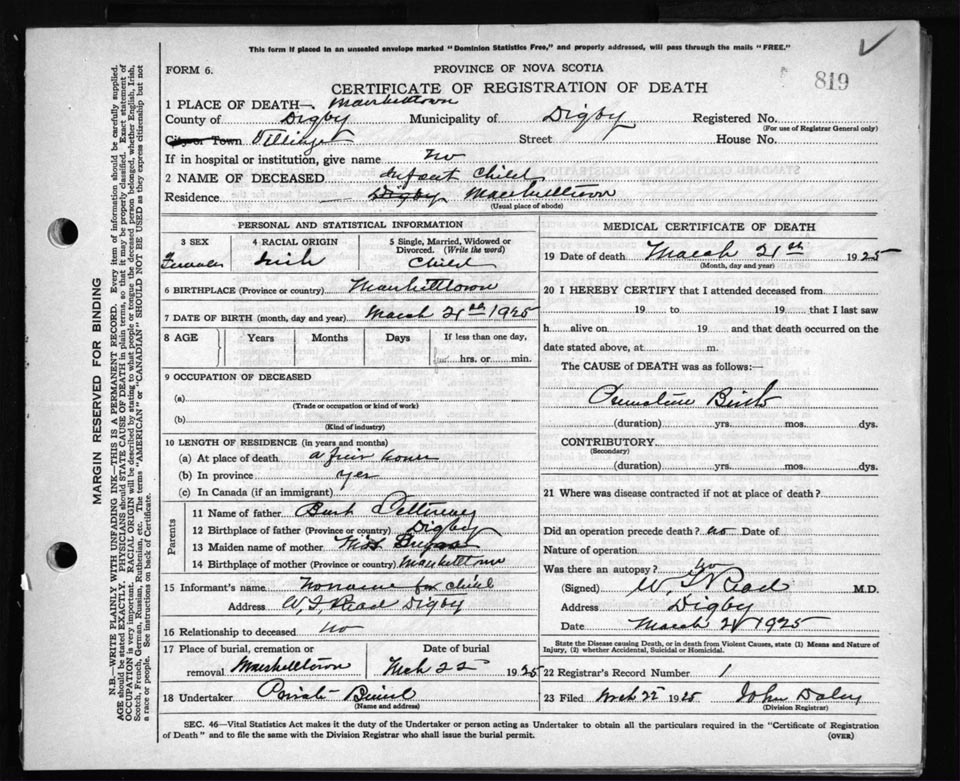 This form if placed in an unsealed envelope marked "Dominion Statistics Free," and properly addressed, will pass through the mails "FREE."
FORM 6.
PROVINCE OF NOVA SCOTIA
819
CERTIFICATE OF REGISTRATION OF DEATH
1 PLACE OF DEATH—
County of Digby Municipality of Digby Registered No.
(For use of Registrar General only)
City or Town Village Street House No.
If in hospital or institution, give name no
2 NAME OF DECEASED Infant Child
Residence Digby Marshelltown
(Usual place of abode)
PERSONAL AND STATISTICAL INFORMATION
3 SEX 4 RACIAL ORIGIN 5 Single, Married, Widowed or Divorced. (Write the word)
Female Irish Child
6 BIRTHPLACE (Province or country)
7 DATE OF BIRTH (month, day and year) March 21st 1925
8 AGE Years Months Days If less than one day,
hrs. or min.
9 OCCUPATION OF DECEASED
(a)
(Trade or occupation or kind of work)
(b)
(Kind of industry)
10 LENGTH OF RESIDENCE (in years and months)
(a) At place of death a few hours
(b) In province yes
(c) In Canada (if an immigrant)
Parents
11 Name of father
12 Birthplace of father (Province or country) Digby
13 Maiden name of mother
14 Birthplace of mother (Province or country)
15 Informant's name No name for child
Address W. Read Digby
16 Relationship to deceased no
17 Place of burial, cremation or removal Marshelltown
Date of burial Mch 22 1925
18 Undertaker Private Burial
(Name and address)
MEDICAL CERTIFICATE OF DEATH
19 Date of death March 21st 1925
(Month, day and year)
20 I HEREBY CERTIFY that I attended deceased from
19 to 19 that I last saw
h alive on 19 and that death occurred on the
date stated above, at m.
The CAUSE of DEATH was as follows:—
Premature Birth
(duration) yrs. mos. dys.
CONTRIBUTORY.
(Secondary)
(duration) yrs. mos. dys.
21 Where was disease contracted if not at place of death?
Did an operation precede death? no Date of
Nature of operation
Was there an autopsy? no
(Signed) Read M.D.
Address Digby
Date March 21 1925
State the Disease causing Death, or in death from Violent Causes, state (1) Means and Nature of Injury, (2) whether Accidental, Suicidal or Homicidal.
22 Registrar's Record Number 1
23 Filed Mch 22 1925 John Daley
(Division Registrar)
SEC. 46—Vital Statistics Act makes it the duty of the Undertaker or person acting as Undertaker to obtain all the particulars required in the "Certificate of Registration
of Death" and to file the same with the Division Registrar who shall issue the burial permit.
(OVER)
MARGIN RESERVED FOR BINDING
N.B.—WRITE PLAINLY WITH UNFADING INK—THIS IS A PERMANENT RECORD. Every item of information should be carefully supplied.
AGE should be stated EXACTLY. PHYSICIANS should STATE CAUSE OF DEATH in plain terms, so that it may be properly classified. Exact statement of
OCCUPATION is very important. RACIAL ORIGIN will be described by stating to what people or tongue the deceased person belonged, whether English, Irish,
Scotch, French, German, Russian, Ruthenian, etc. The terms "AMERICAN" or "CANADIAN" SHOULD NOT BE USED as they express citizenship but not
a race or people. See instructions on back of Certificate.